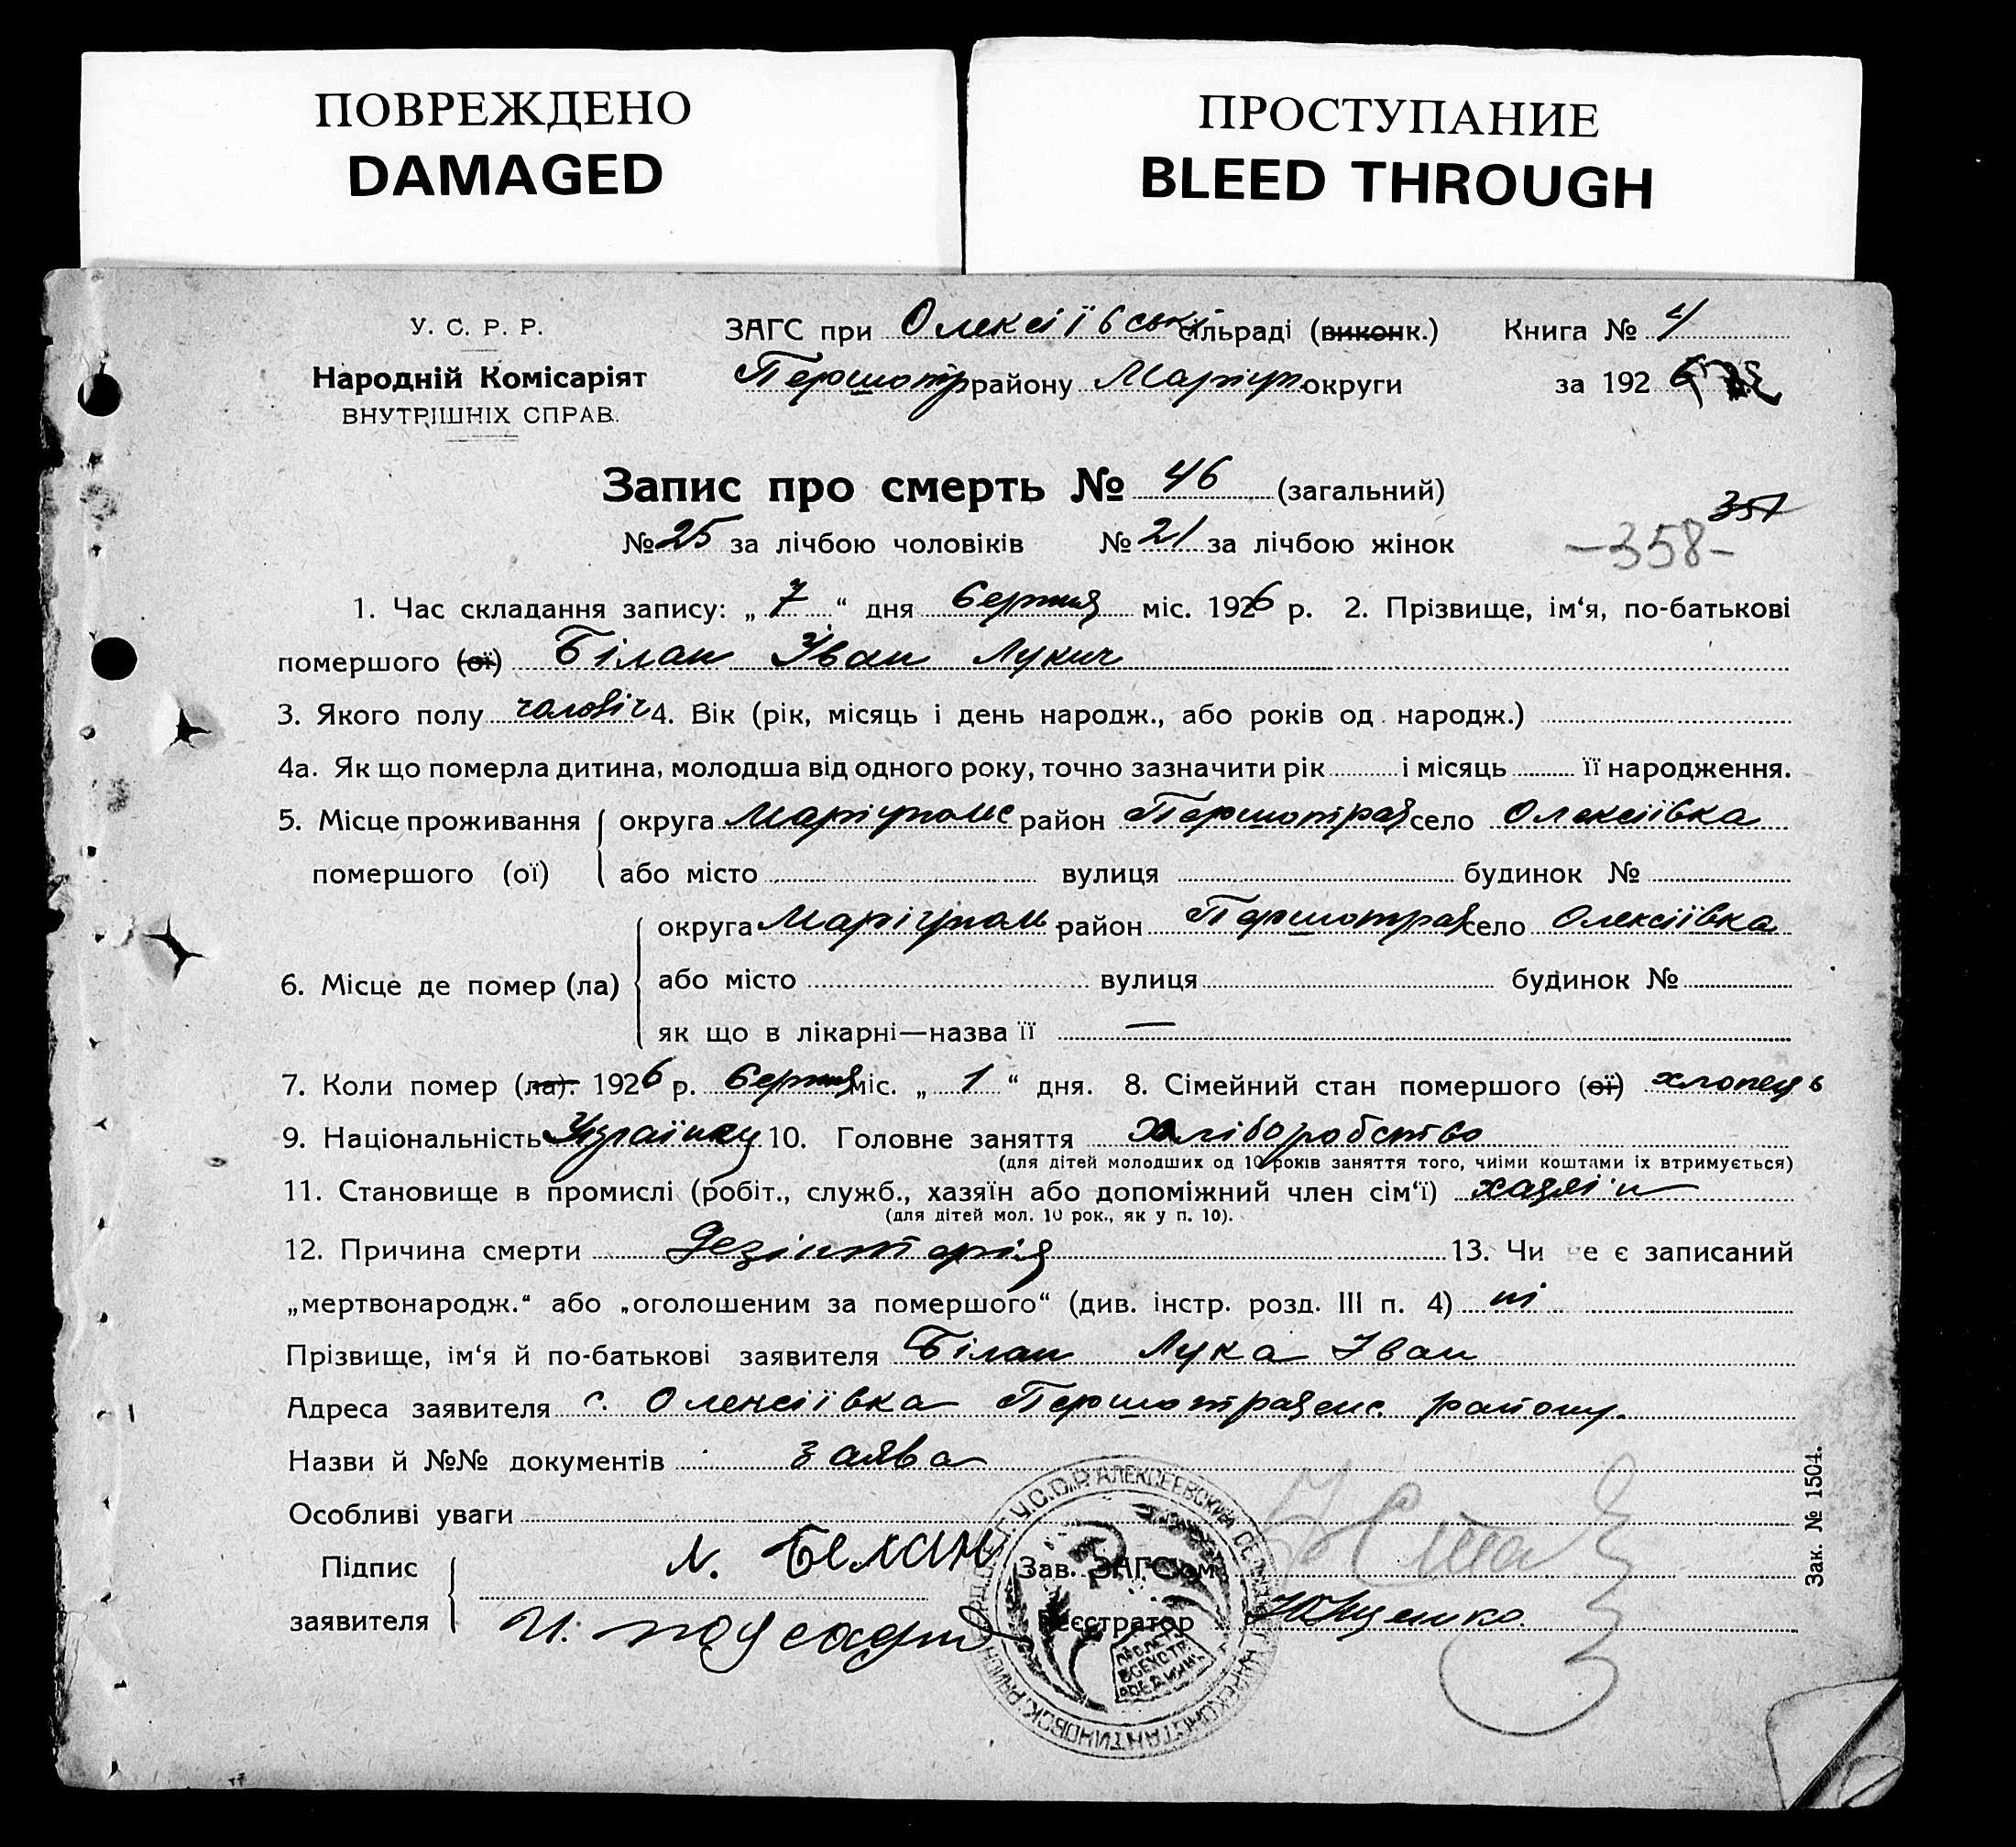 ПОВРЕЖДЕНО
DAMAGED
ПРОСТУПАНИЕ
BLEED THROUGH
У. С. Р. Р.
Народній Комісаріят
ВНУТРІШНІХ СПРАВ.
ЗАГС при Олексіївські сільраді (виконк.) Книга № 4
Першотр району Маріуп округи за 1926
Запис про смерть № 46 (загальний)
351
№ 25 за лічбою чоловіків № 21 за лічбою жінок
-358-
1. Час складання запису: „ 7 “ дня серпня міс. 1926 р. 2. Прізвище, ім‘я, по-батькові
помершого (ої) Білан Іван Лукич
3. Якого полу чоловіч 4. Вік (рік, місяць і день народж., або років од народж.)
4а. Як що померла дитина, молодша від одного року, точно зазначити рік і місяць її народження.
5. Місце проживання округа Маріупольс район Першотрав село Олексіївка
помершого (ої) або місто вулиця будинок №
округа Маріуполь район Першотрав село Олексіївка
6. Місце де помер (ла) або місто вулиця будинок №
як що в лікарні—назва її —
7. Коли помер (ла). 1926 р. серпня міс. „ 1 “ дня. 8. Сімейний стан помершого (ої) хлопець
9. Національність Українец 10. Головне заняття хліборобство
(для дітей молодших од 10 років заняття того, чиїми коштами їх втримується)
11. Становище в промислі (робіт., служб., хазяїн або допоміжний член сім‘ї) хазяїн
(для дітей мол. 10 рок., як у п. 10).
12. Причина смерти Дезінтерія 13. Чи не є записаний
„мертвонародж.“ або „оголошеним за помершого“ (див. інстр. розд. III п. 4) ні
Прізвище, ім‘я й по-батькові заявителя Білан Лука Іван
Адреса заявителя с. Олексіївка Першотравенс. району.
Назви й №№ документів заява
Особливі уваги
Підпис Л. Белан Зав. ЗАГСом
заявителя Реєстратор Ющенко
Зак. № 1504.